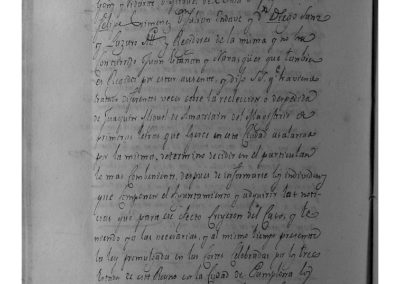 Felipe Ximenez Jason Inbove y Dn Diego Sanz
y Luzero Al. y Regidores de la misma y no ha
concurrido Juan Estañon y Naragues que tambien
es Regidor por estar ausente, y dijo S.S. q. haviendo
tratado diferentes veces sobre la reeleccion o despedida
de Joaquin Miguel de Amatriain del Magisterio de
primeras letras que egerce en esta Ciudad asalariado
por la misma, determino decidir en el particular
lo mas combeniente, despues de informarse los individuos
que componen el Ayuntamiento y adquirir las noti-
cias que para ese efecto fuesen del caso, y te-
niendo ya las necesarias, y al mismo tiempo presente
la ley promulgada en las Cortes celebradas por los tres
Estados de este Reyno en la Ciudad de Pamplona los